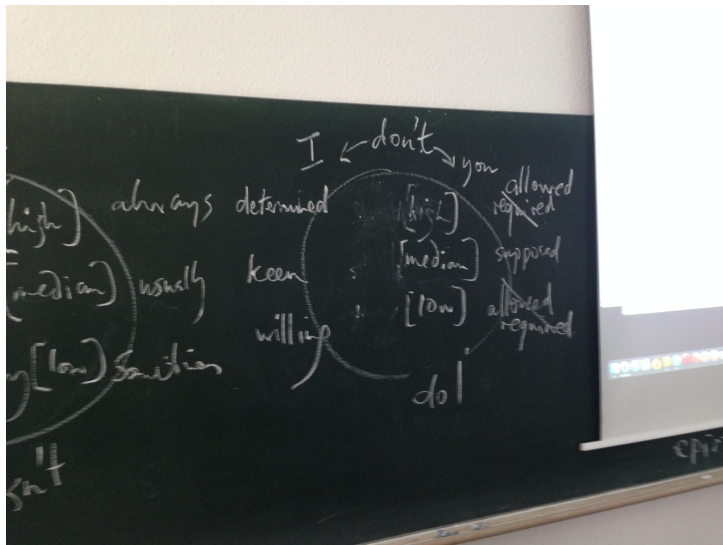 I ← don't → you
high] always determined [high] allowed
required
[median] usually keen [median] supposed
[low] sometimes willing [low] allowed
required
do!
n't